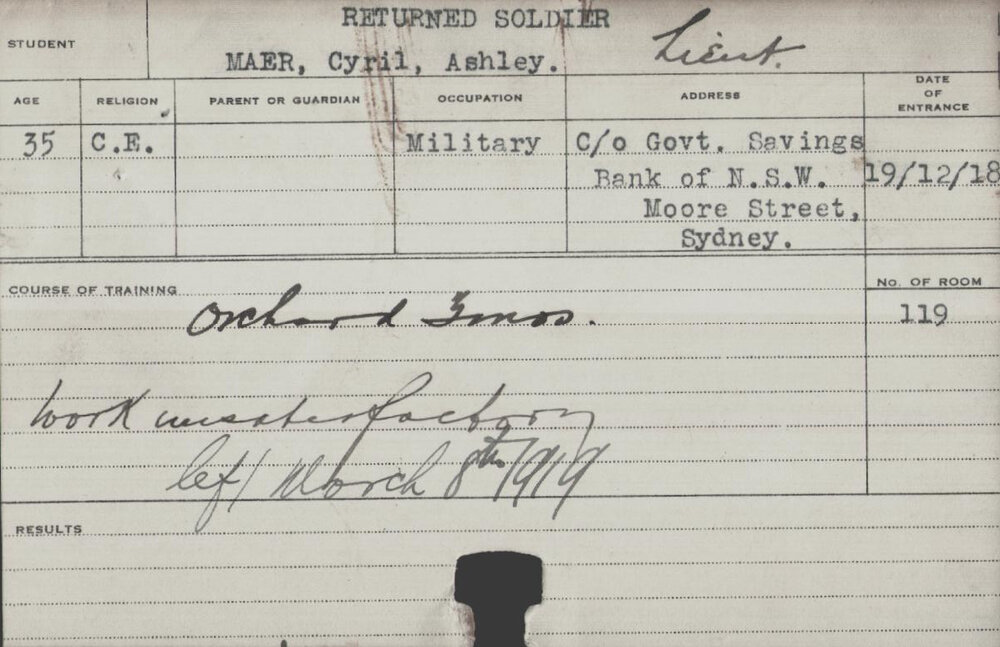 RETURNED SOLDIER
STUDENT
MAER, Cyril, Ashley.
Lieut.
AGE
RELIGION
PARENT OR GUARDIAN
OCCUPATION
ADDRESS
DATE
OF
ENTRANCE
35
C.E.
Military
C/o Govt. Savings
Bank of N.S.W.
Moore Street,
Sydney.
19/12/18
COURSE OF TRAINING
No. OF ROOM
Orchard 3mos.
119
Work unsatisfactory
left March 8th 1919
RESULTS